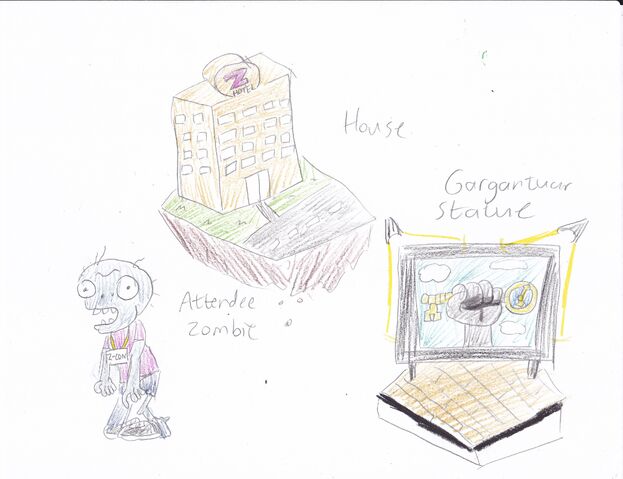 Z
HOTEL
House
Gargantuar
Statue
Attendee
Zombie
Z-CON